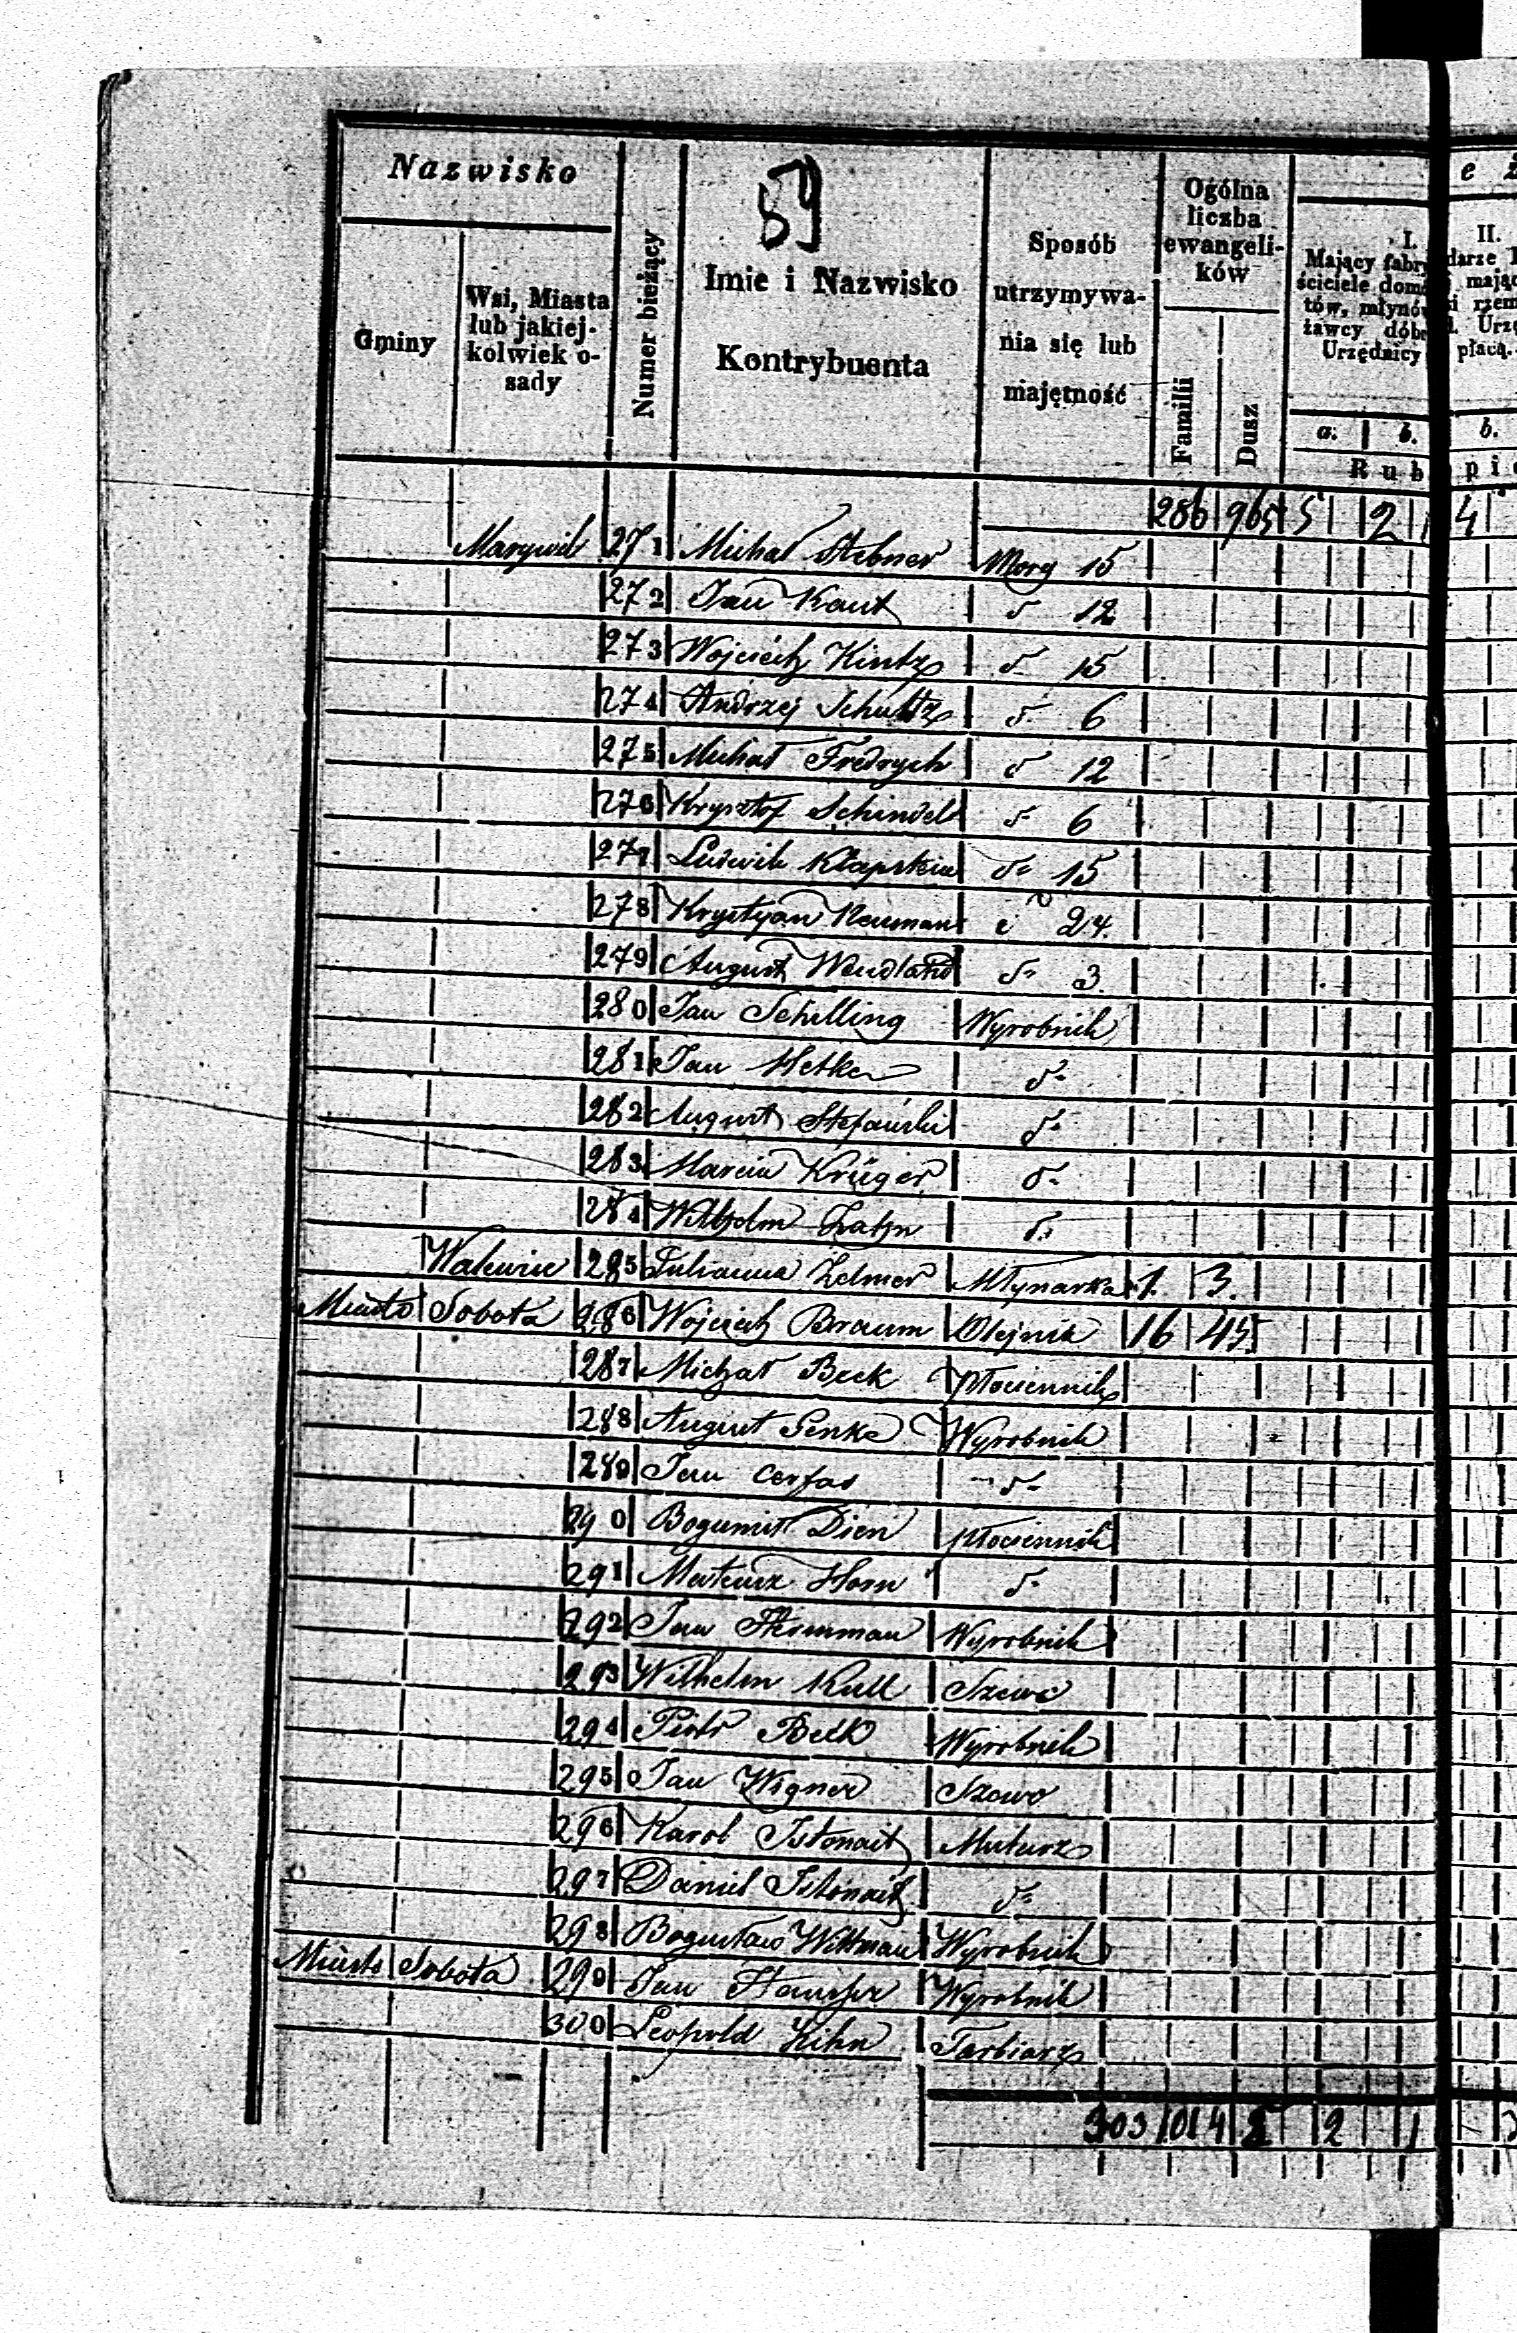 Nazwisko
Gminy
Wsi, Miasta
lub jakiej-
kolwiek o-
sady
Numer bieżący
59
Imie i Nazwisko
Kontrybuenta
Sposób
utrzymywa-
nia się lub
majętność
Ogólna
liczba
ewangeli-
ków
Familii
Dusz
I.
Mający fabry
ściciele domó
tów, młynów
żawcy dóbr
Urzędnicy
a. b.
Rub
e ż
II.
darze
mając
i rzem
l. Urzę
płacą.
b.
pi
286 965 5 2 4
Marywil 271 Michał Stebner Morg 15
272 Jan Kant d 12
273 Wojciech Kintz d 15
274 Andrzej Schultz d 6
275 Michał Fredrych d 12
276 Krysztof Schindel d 6
277 Ludwik d 15
278 Krystyan Neuman 24.
279 August Wendland d 3.
280 Jan Schilling Wyrobnik
281 Jan Hetke d
282 August Stefański d
283 Marcin Krüger d
284 Wilhelm Zahn d
Walewice 285 Julianna Zelmer Młynarka 1. 3.
Miasto Sobota 286 Wojciech Braum Olejnik 16 45.
287 Michał Beck płóciennik
288 August Penke Wyrobnik
289 Jan Cerfas d
290 Bogumił Dien płóciennik
291 Mateusz Horn d
292 Jan Herman Wyrobnik
293 Wilhelm Kull Szewc
294 Piotr Beck Wyrobnik
295 Jan Wigner Szewc
296 Karol Mularz
297 Daniel d
298 Bogusław Wittman Wyrobnik
Miasto Sobota 299 Jan Wyrobnik
300 Leopold Kihn Farbiarz
303 1014 2 1